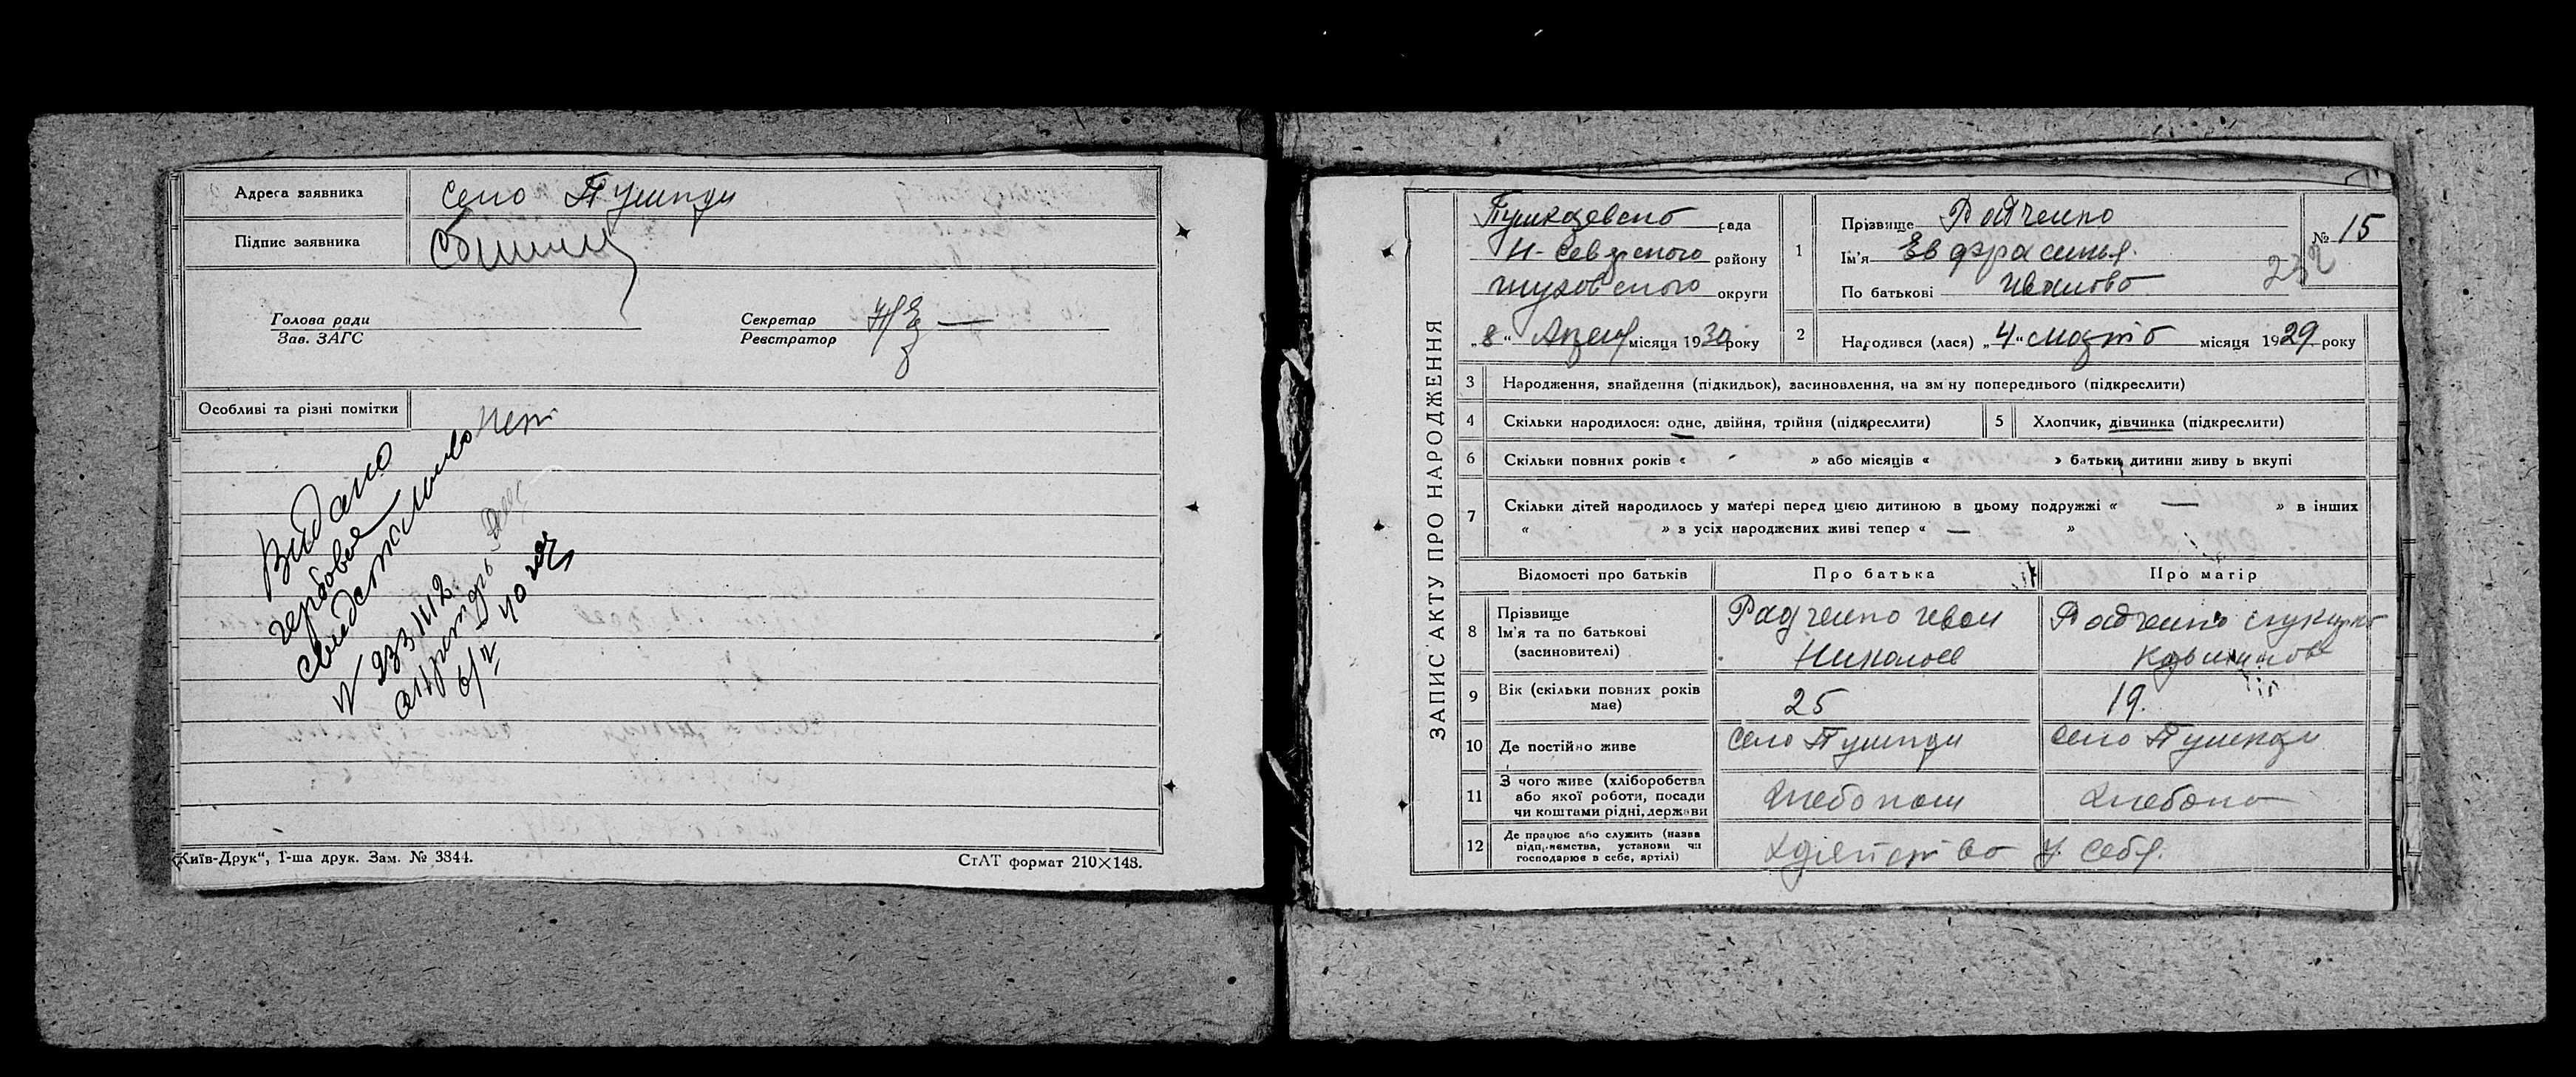 Адреса заявника село Пушкари
Підпис заявника
Голова ради
Зав. ЗАГС
Секретар
Реєстратор
Особливі та різні помітки
Видано
гербовое
свидетельство
№ 233412
6/II 40
„Київ-Друк“, 1-ша друк. Зам. № 3844.
СтАТ формат 210×148.
ЗАПИС АКТУ ПРО НАРОДЖЕННЯ
рада
Н-Северского району
глуховского округи
„8“ Апреля місяця 1930 року
1 Прізвище Радченко
Ім'я Евфросинья
По батькові Иванова
№ 15
232
2 Народився (лася) „4“ марта місяця 1929 року
3 Народження, знайдення (підкидьок), засиновлення, на зміну попереднього (підкреслити)
4 Скільки народилося: одне, двійня, трійня (підкреслити)
5 Хлопчик, дівчинка (підкреслити)
6 Скільки повних років « » або місяців « » батьки дитини живуть вкупі
7 Скільки дітей народилось у матері перед цією дитиною в цьому подружжі « — » в інших
« » в усіх народжених живі тепер « — »
Відомості про батьків Про батька Про матір
8 Прізвище
Ім'я та по батькові
(засиновителі)
Радченко Иван
Николаев
Радченко
9 Вік (скільки повних років
має)
25 19.
10 Де постійно живе село Пушкари село Пушкари
11 З чого живе (хліборобства
або якої роботи, посади
чи коштами рідні, держави
12 Де працює або служить (назва
підприємства, установи чи
господарює в себе, артілі)
у себя.